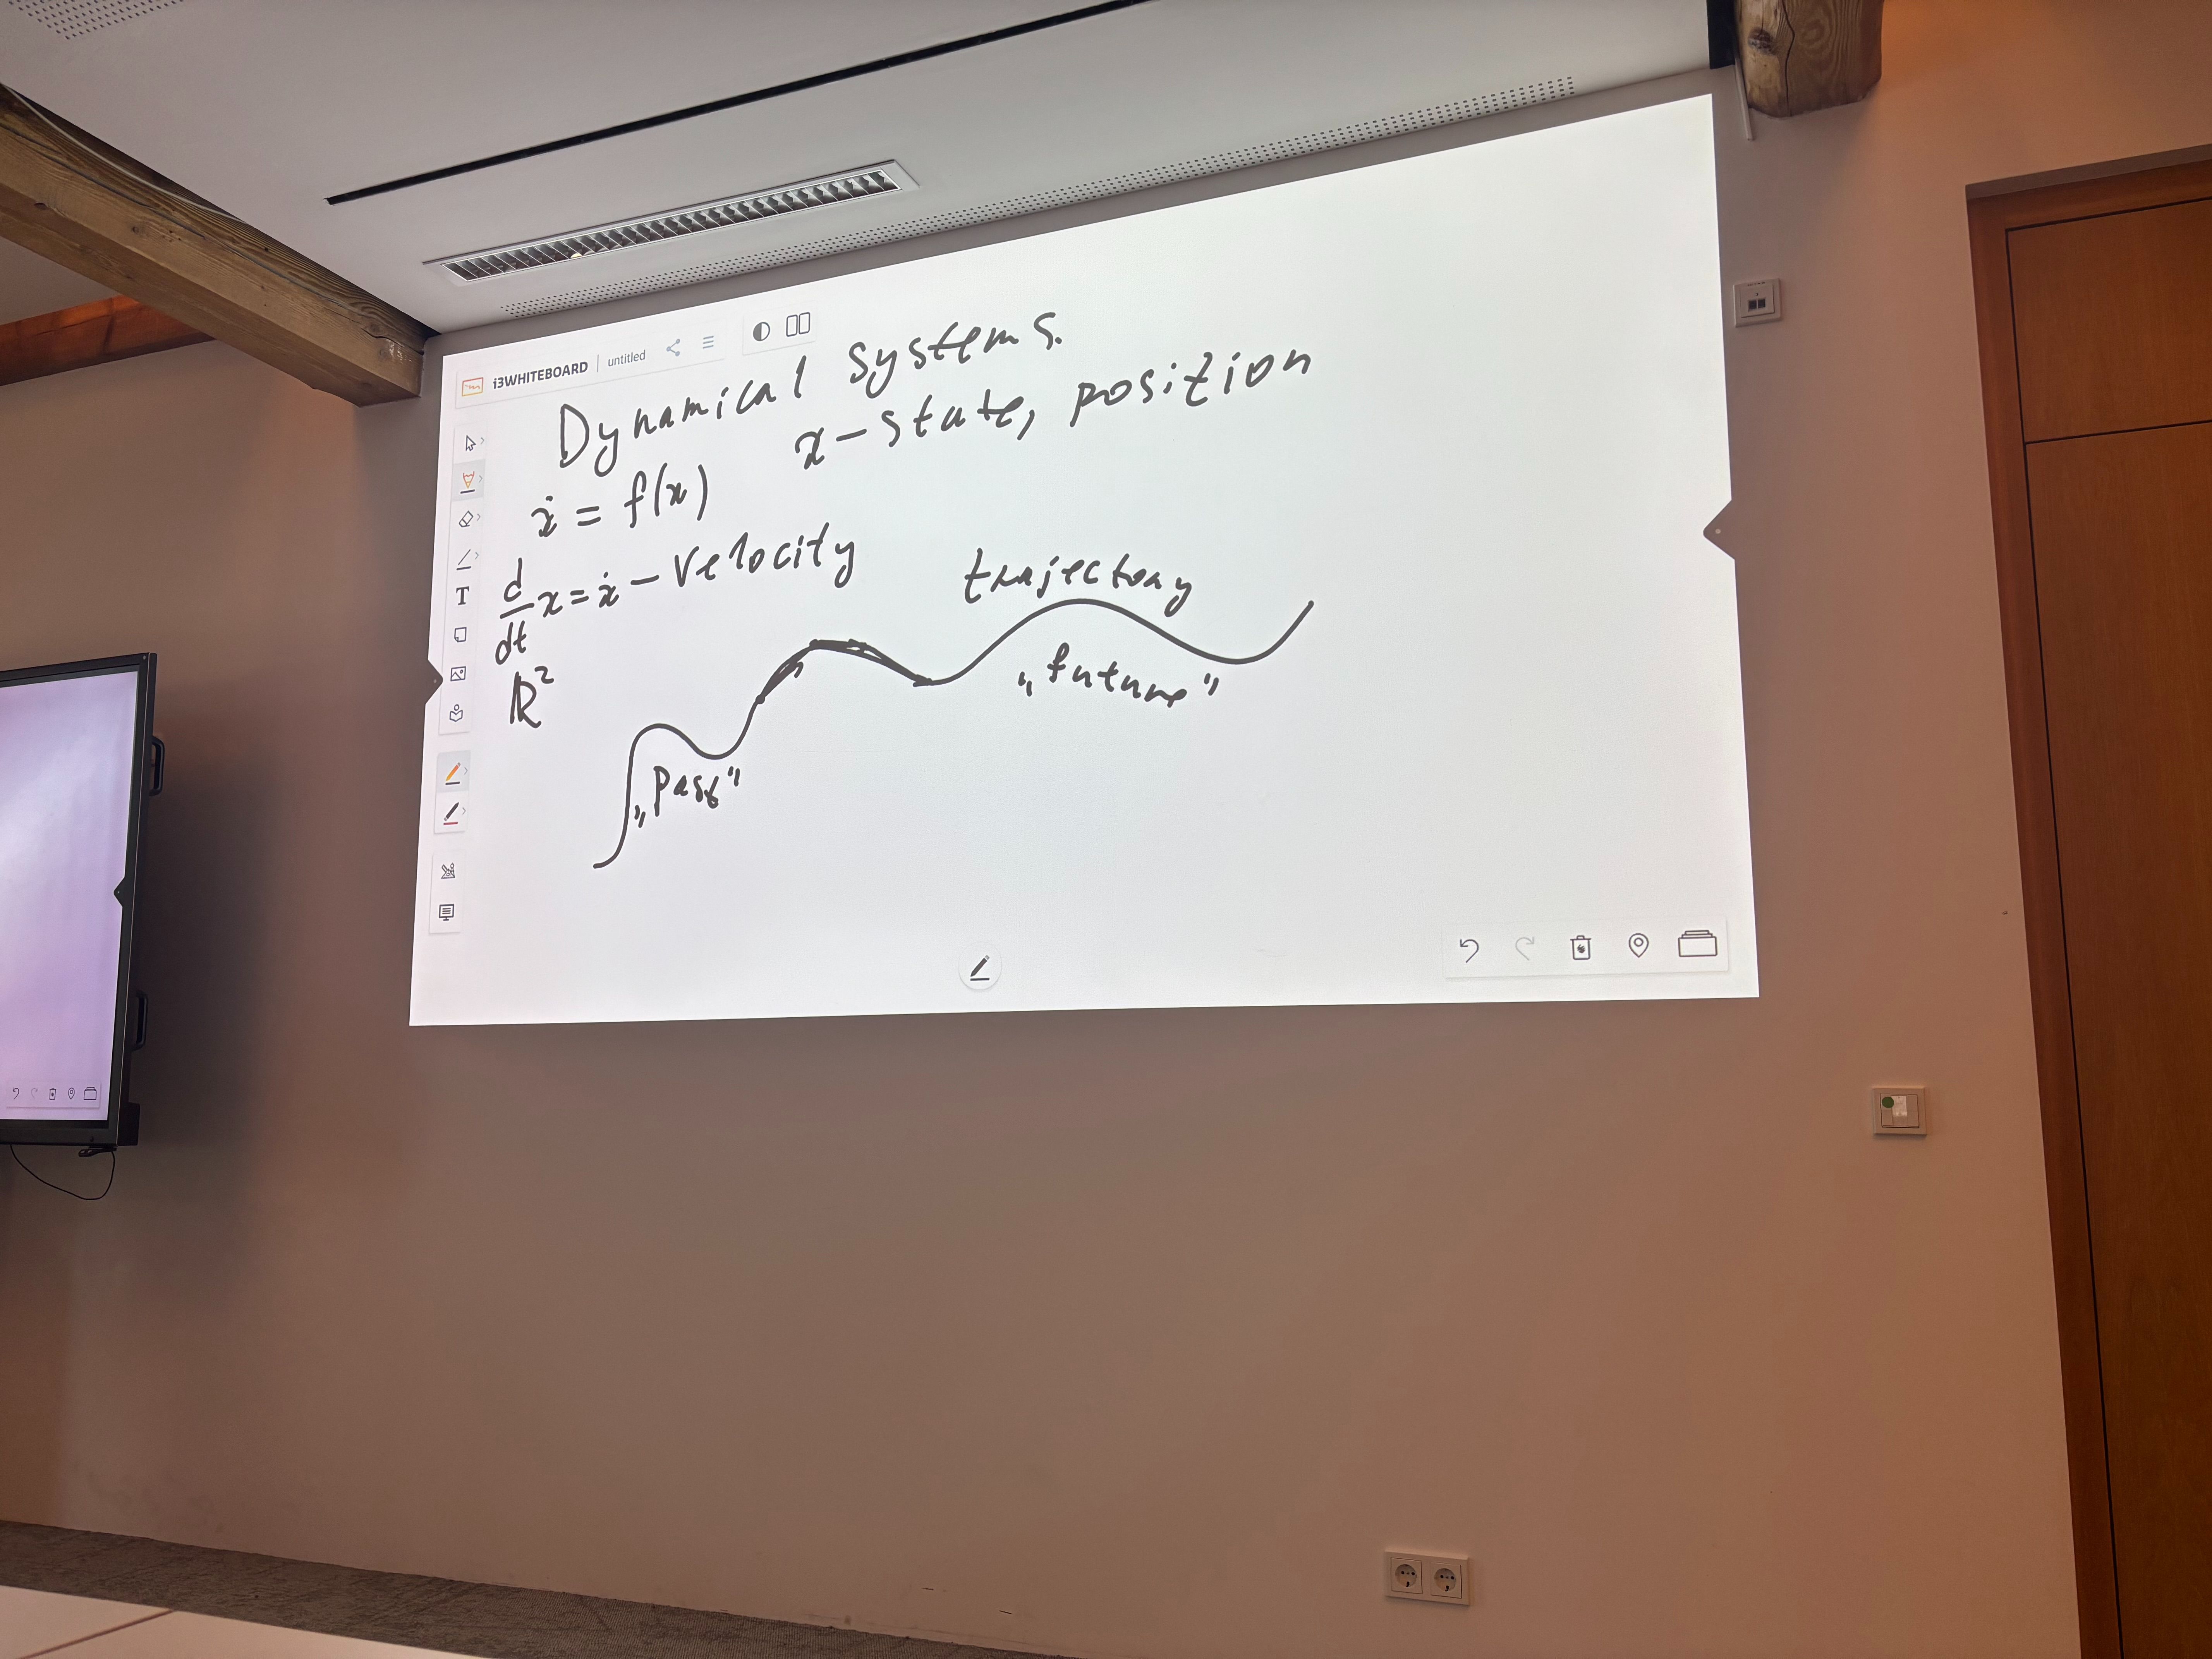 i3WHITEBOARD | untitled
Dynamical systems.
ẋ = f(x)
x – state, position
d/dt x = ẋ – velocity
ℝ²
trajectory
„future"
„past"
T